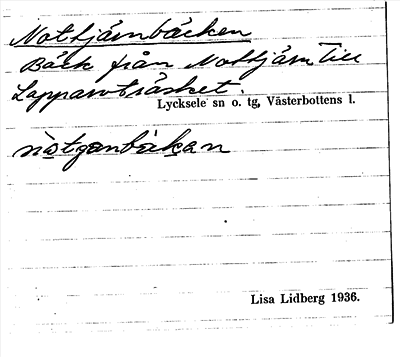 Nottjärnbäcken
Bäck från Nottjärn till
Lappavoträsket.
Lycksele sn o. tg, Västerbottens l.
Lisa Lidberg 1936.